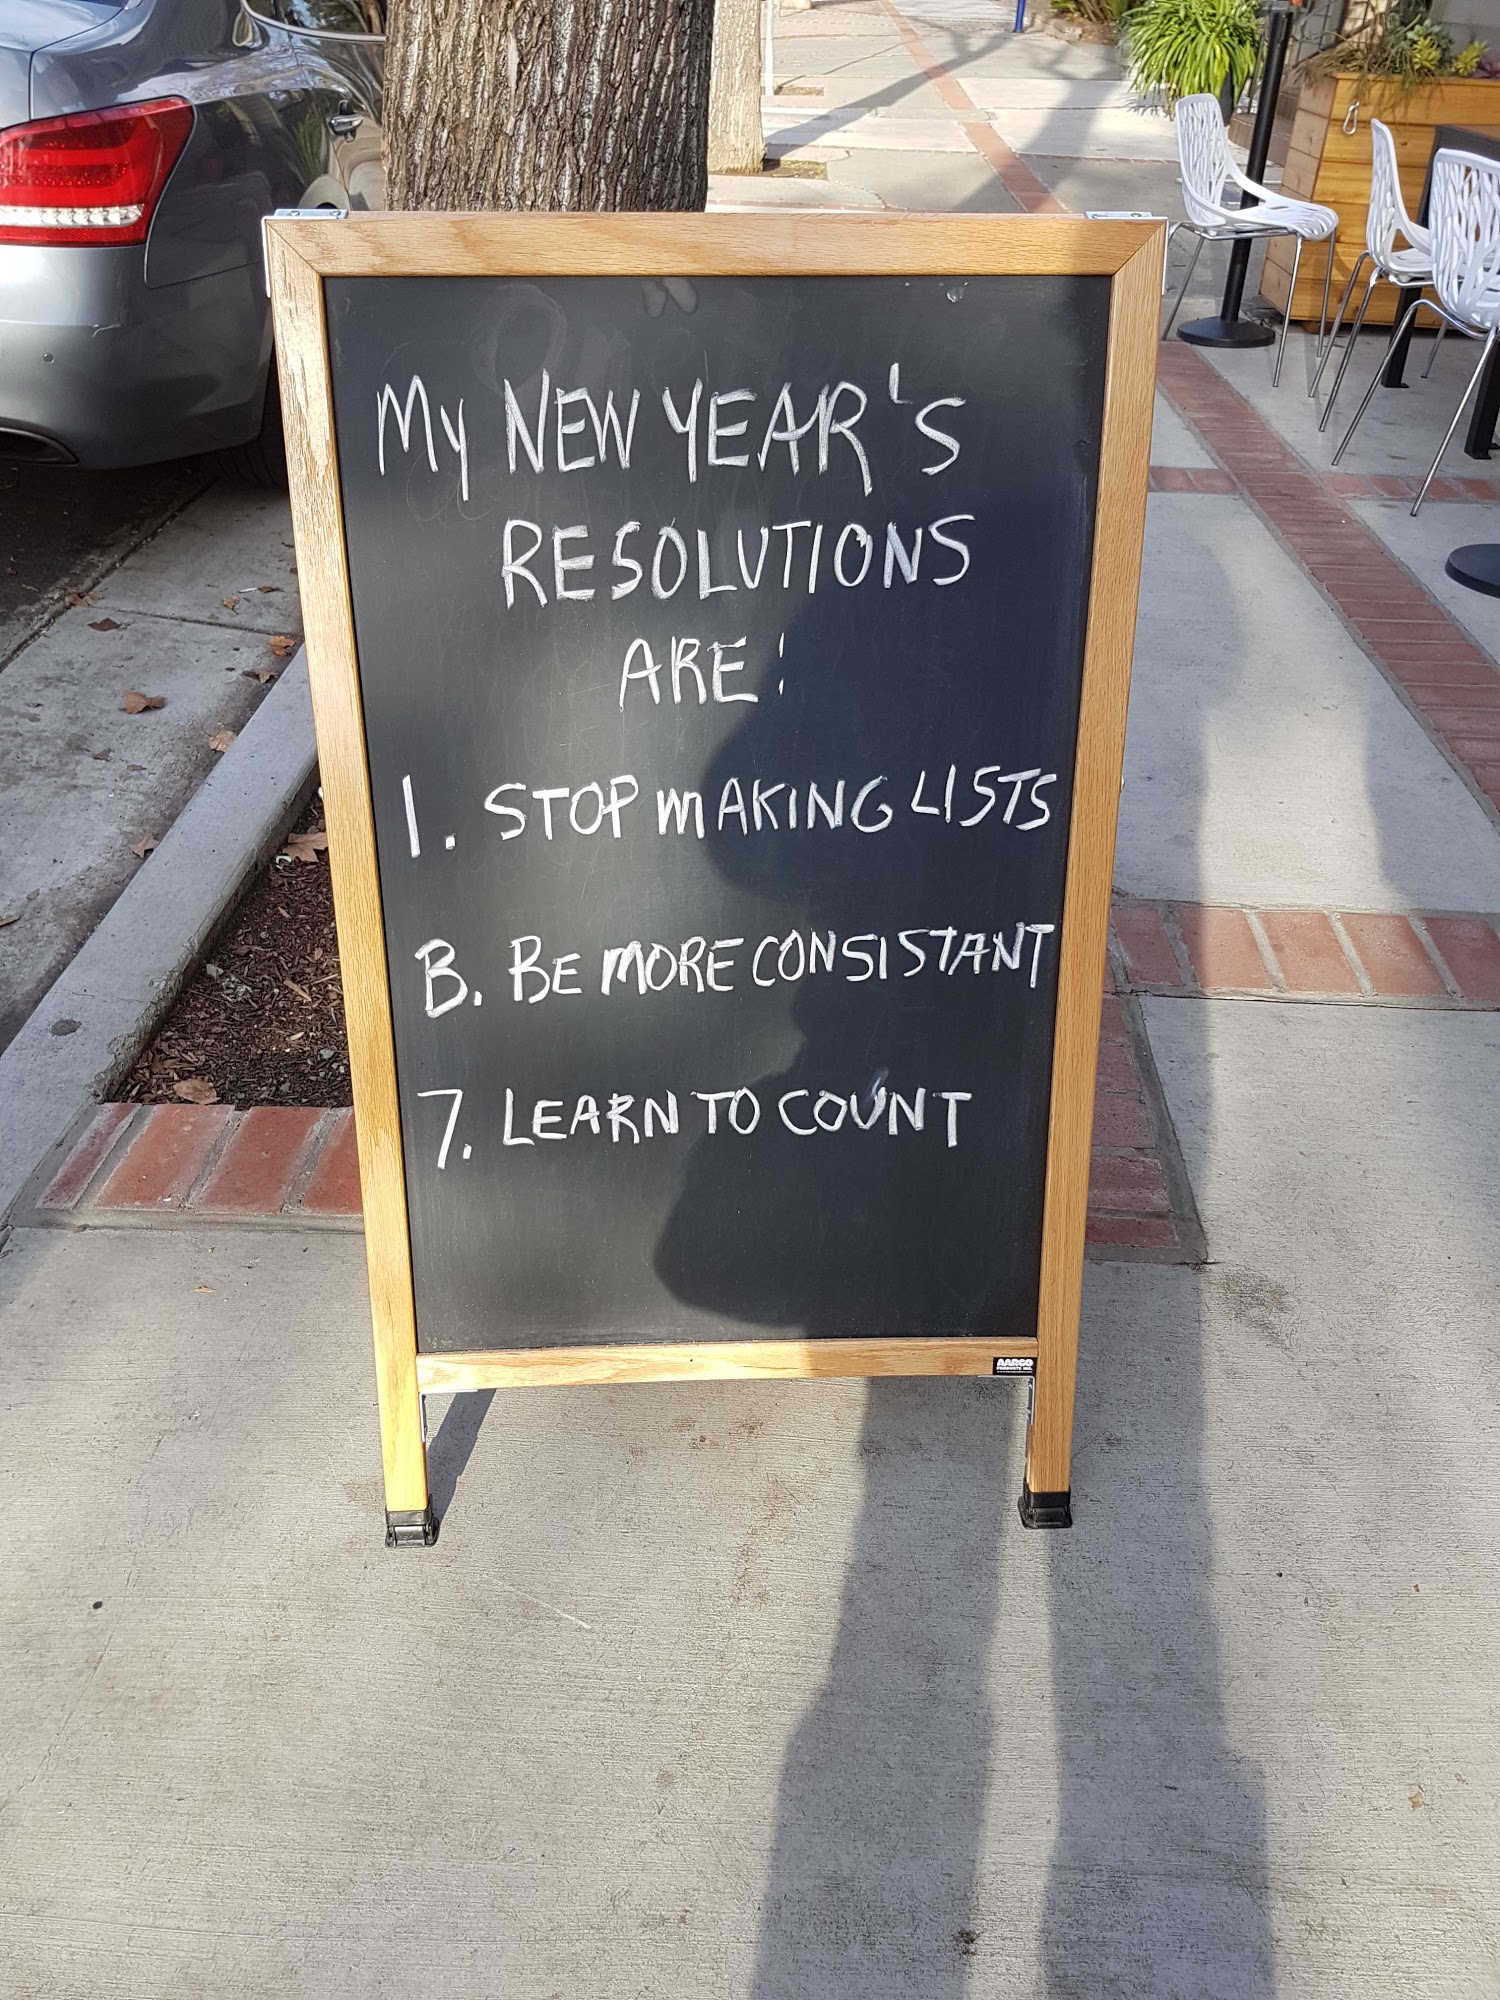 My NEW YEAR'S
RESOLUTIONS
ARE:
1. STOP MAKING LISTS
B. BE MORE CONSISTANT
7. LEARN TO COUNT
AARCO
PRODUCTS INC.